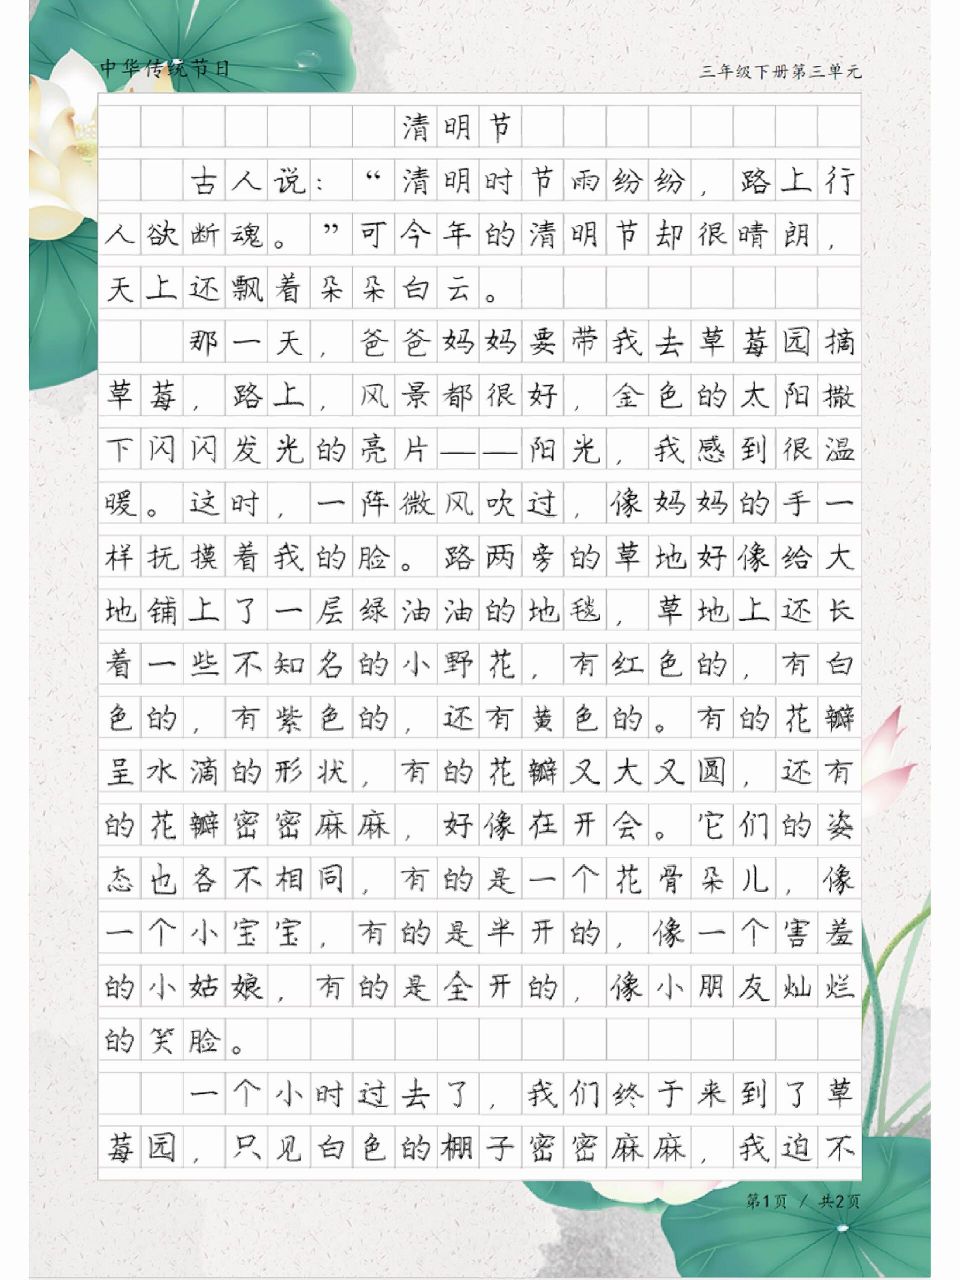 中华传统节日
三年级下册第三单元
清明节
古人说：“清明时节雨纷纷，路上行
人欲断魂。”可今年的清明节却很晴朗，
天上还飘着朵朵白云。
那一天，爸爸妈妈要带我去草莓园摘
草莓，路上，风景都很好，金色的太阳撒
下闪闪发光的亮片——阳光，我感到很温
暖。这时，一阵微风吹过，像妈妈的手一
样抚摸着我的脸。路两旁的草地好像给大
地铺上了一层绿油油的地毯，草地上还长
着一些不知名的小野花，有红色的，有白
色的，有紫色的，还有黄色的。有的花瓣
呈水滴的形状，有的花瓣又大又圆，还有
的花瓣密密麻麻，好像在开会。它们的姿
态也各不相同，有的是一个花骨朵儿，像
一个小宝宝，有的是半开的，像一个害羞
的小姑娘，有的是全开的，像小朋友灿烂
的笑脸。
一个小时过去了，我们终于来到了草
莓园，只见白色的棚子密密麻麻，我迫不
第1页 / 共2页